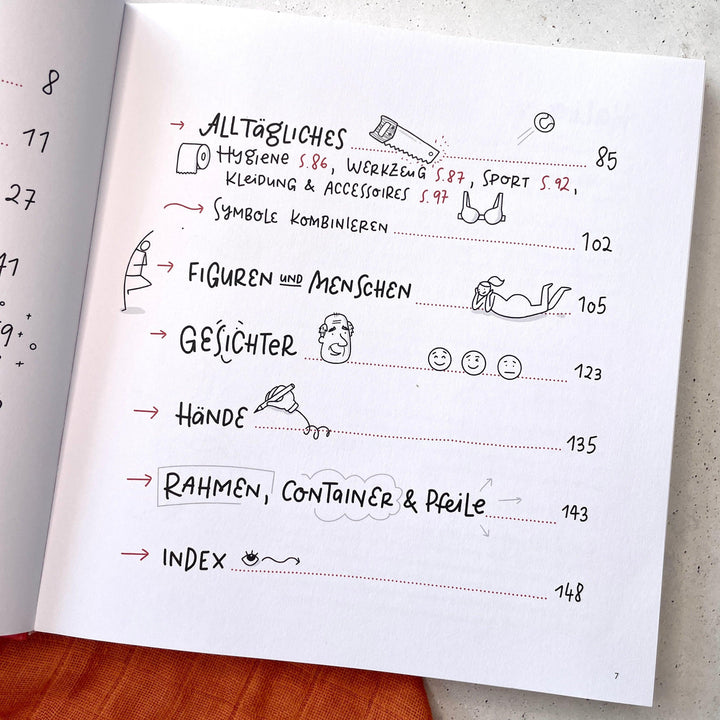 8
11
27
→ ALLTägLICHES 85
HYGIENE S.86, WERKZEUG S.87, SPORT S.92,
KLEIDUNG & ACCESSOIRES S.97
SYMBOLE KOMBINIEREN 102
→ FIGUREN UND MENSCHEN 105
→ GESICHTER 123
→ HÄNDE 135
→ RAHMEN, CONTAINER & Pfeile 143
→ INDEX 148
7